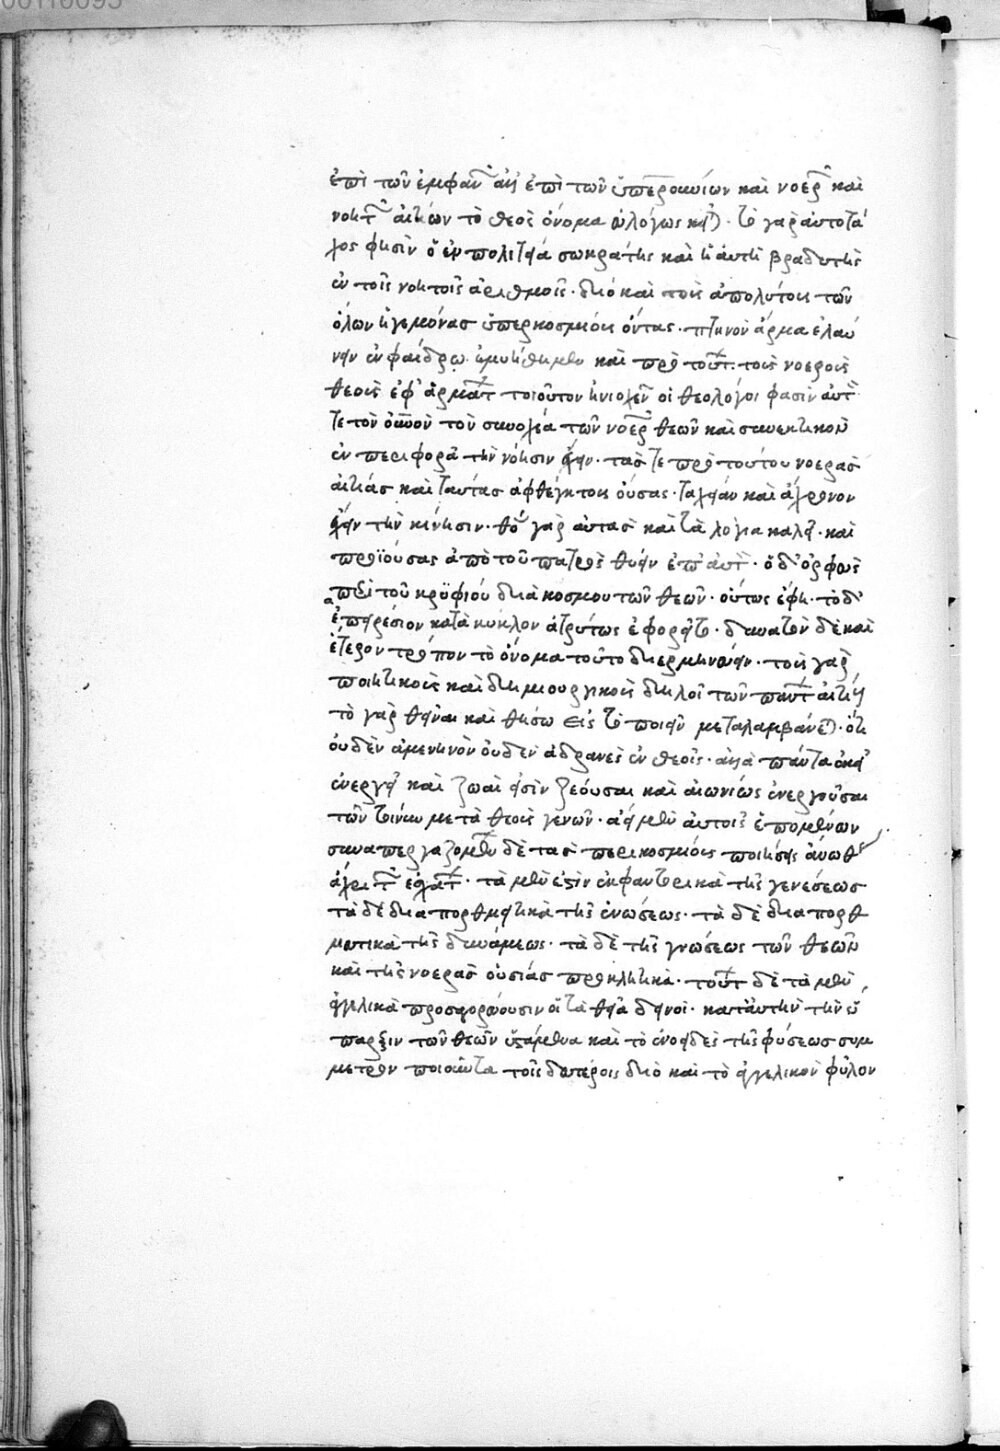 ἐπὶ τῶν ἐμφαν ἀλλ' ἐπὶ τῶν ὑπερουνίων καὶ νοερ καὶ
νοητ αἰτιῶν τὸ θεὸς ὄνομα εὐλόγως κεῖται. τὸ γὰρ αὐτοτά
χος φησὶν ὁ ἐν πολιτεία σωκράτης καὶ ἡ αὐτὴ βραδυτὴς
ἐν τοῖς νοητοῖς ἀριθμοῖς. διὸ καὶ τοὺς ἀπολύτους τῶν
ὅλων ἡγεμόνας ὑπερκοσμίους ὄντας. πτηνὸν ἅρμα ἐλαύ
νειν ἐν φαίδρω ἐμυήθημεν καὶ πρὸ τούτ. τοὺς νοεροὺς
θεοὺς ἐφ' ἁρμάτ τοιοῦτον ἡνιοχεῖν οἱ θεολόγοι φασὶν αὐτ
τε τὸν οὐνὸν τὸν συνοχέα τῶν νοερ θεῶν καὶ συνεκτικὸν
ἐν περιφορᾶ τὴν νόησιν ἔχειν. τάς τε πρὸ τούτου νοερὰς
αἰτίας καὶ ταύτας ἀφθέγκτους οὔσας. ταχεῖαν καὶ ἄχρονον
ἔχειν τὴν κίνησιν. θο γὰρ αὐτὰς καὶ τὰ λόγια καλεῖ. καὶ
προϊούσας ἀπὸ τοῦ πατρὸς θύειν ἐπ' αὐτ. ὁ δ' ὀρφεὺς
περὶ τοῦ κρυφίου διακόσμου τῶν θεῶν. οὕτως ἔφη. τὸ δ'
ἀπειρέσιον κατὰ κύκλον ἀτρύτως ἐφορεῖτο. δυνατὸν δὲ καὶ
ἕτερον τρόπον τὸ ὄνομα τοῦτο διερμηνεύειν. τοὺς γὰρ
ποιητικοὺς καὶ δημιουργικοὺς δηλοῖ τῶν πάντ αἰτίους
τὸ γὰρ θεῖναι καὶ θήσω εἰς τὸ ποιεῖν μεταλαμβάνεται. ὅτι
οὐδὲν ἀμενηνὸν οὐδὲν ἀδρανὲς ἐν θεοῖς. ἀλλὰ πάντα ἐκεῖ
ἐνέργει καὶ ζωαί εἰσιν ζέουσαι καὶ αἰωνίως ἐνεργοῦσαι
τῶν μετὰ θεοὺς γενῶν. ἀεὶ μὲν αὐτοῖς ἑπομένων
συναπεργαζομέν δὲ τὰς περικοσμίους ποιήσεις ἄνωθεν
ἄχρι τ ἐσχάτ. τὰ μέν ἐστιν ἐκφαντορικὰ τῆς γενέσεως
τὰ δὲ διαπορθμευτικὰ τῆς ἑνώσεως. τὰ δὲ διαπορθ
μευτικὰ τῆς δυνάμεως. τὰ δὲ τῆς γνώσεως τῶν θεῶν
καὶ τῆς νοερᾶς οὐσίας προκλητικά. τούτ δὲ τὰ μὲν
ἀγγελικὰ προσαγορεύουσιν οἱ τὰ θεῖα δεινοί. κατ' αὐτὴν τὴν ὕ
παρξιν τῶν θεῶν ὑστάμενα καὶ τὸ ἑνοειδὲς τῆς φύσεως συμ
μετρον ποιοῦντα τοῖς δευτέροις διὸ καὶ τὸ ἀγγελικὸν φῦλον